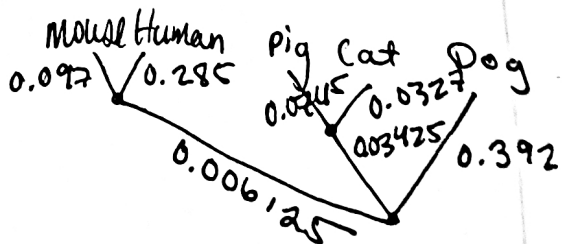 Mouse Human Pig Cat Dog
0.097 0.285 0.0245 0.0327
0.03425 0.392
0.006125